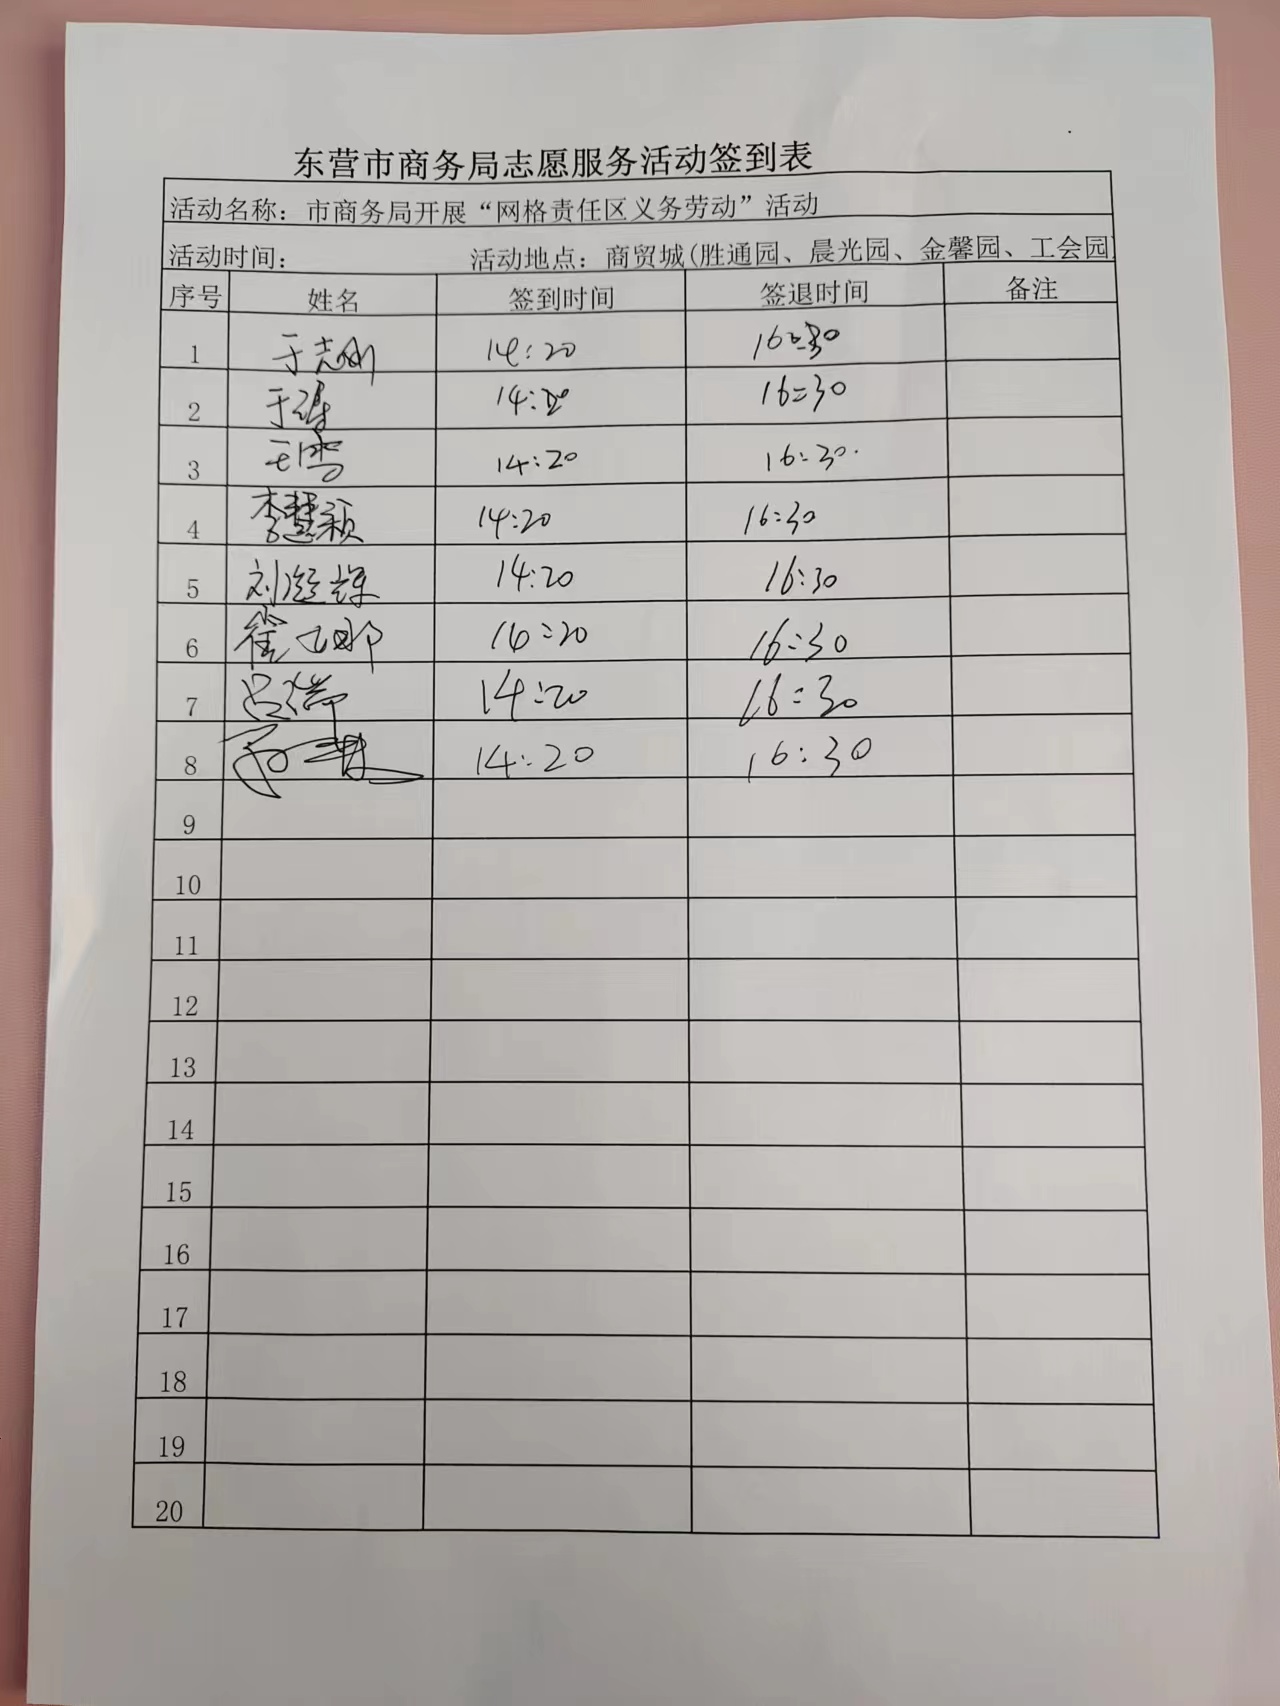 东营市商务局志愿服务活动签到表
活动名称：市商务局开展“网格责任区义务劳动”活动
活动时间： 活动地点：商贸城(胜通园、晨光园、金馨园、工会园)
序号 姓名 签到时间 签退时间 备注
1 于志刚 14:20 16:30
2 14:20 16:30
3 14:20 16:30.
4 李慧颖 14:20 16:30
5 14:20 16:30
6 14:20 16:30
7 14:20 16:30
8 14:20 16:30
9
10
11
12
13
14
15
16
17
18
19
20